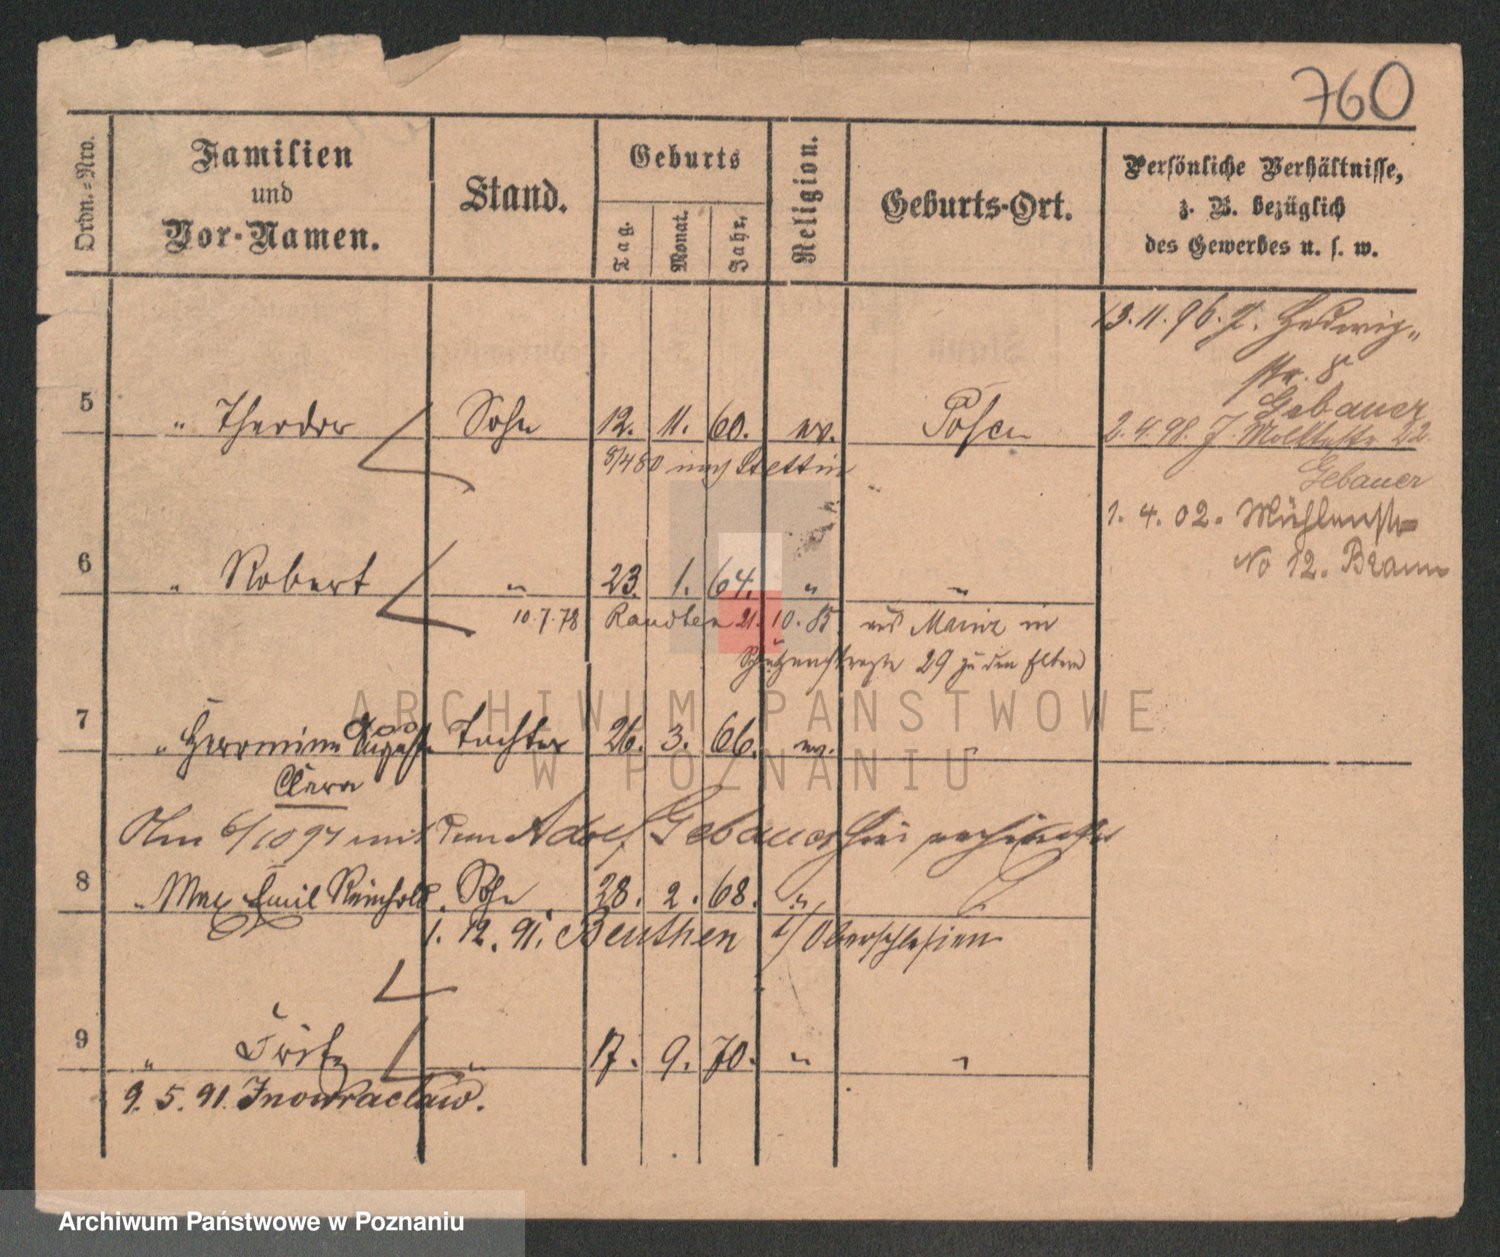 760
Ordn.-Nro.
Familien
und
Vor-Namen.
Stand.
Geburts
Tag.
Monat.
Jahr.
Religion.
Geburts-Ort.
Persönliche Verhältnisse,
z. B. bezüglich
des Gewerbes u. s. w.
13. 11. 96. J. Hedwig-
str. 8
Gebauer
5 " Theodor Sohn 12. 11. 60. ev. Posen
2. 4. 98. J. Moltkestr. 22.
Gebauer
5/4 80 nach Stettin
1. 4. 02. Mühlenstr
No 12. Braun
6 " Robert " 23. 1. 64. " "
10. 7. 78 Randten 21. 10. 85 aus Mainz in
Schützenstraße 29 zu den Eltern
7 " Hermine August. Tochter 26. 3. 66. ev. "
Clara
Am 6/10 97 mit dem Adolf Gebauer hier
8 " Max Emil Reinhold. Sohn 28. 2. 68. "
1. 12. 91. Beuthen i/Oberschlesien
9 " Fritz " 17. 9. 70. " "
9. 5. 91. Inowraclaw.
ARCHIWUM PAŃSTWOWE
W POZNANIU
Archiwum Państwowe w Poznaniu